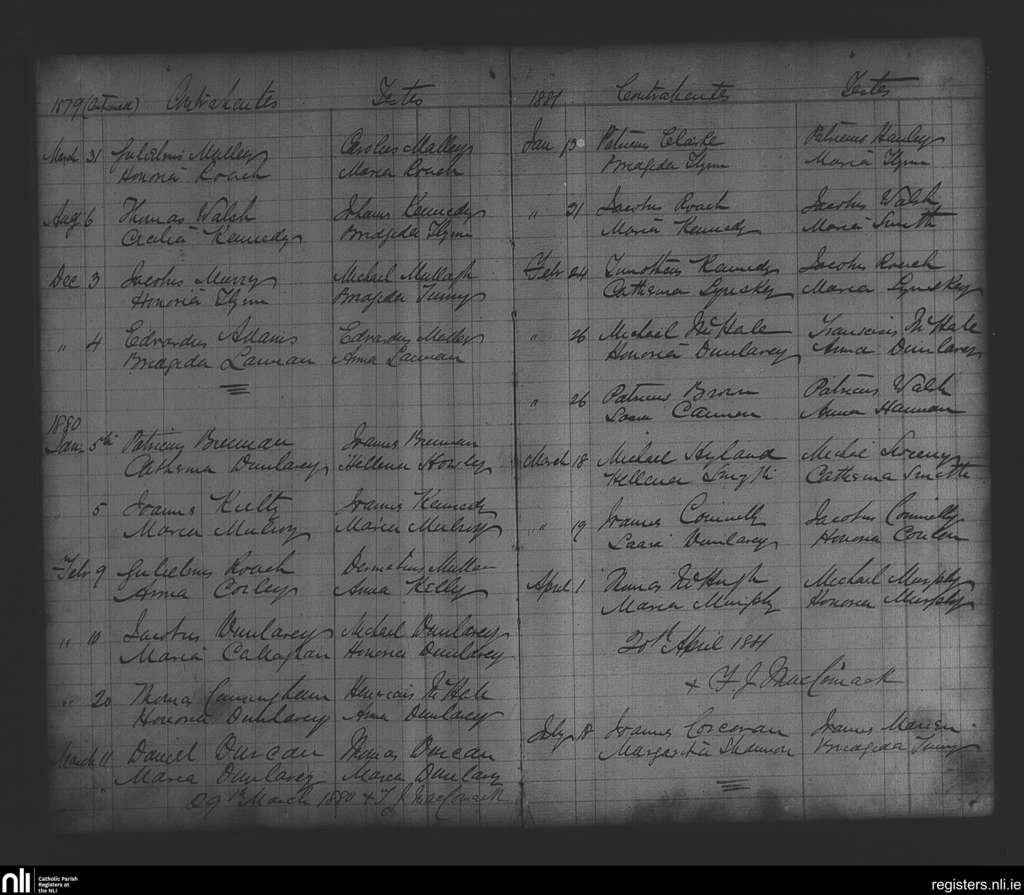 1879 (Continued) Contrahentes Testes
March 31 Gulielmus Malley Carolus Malley
Honoria Roach Maria Roach
Aug 6 Thomas Walsh Johanis Kennedy
Cecilia Kennedy Bridgida Flynn
Dec 3 Jacobus Murry Michael Mullagh
Honoria Flynn Bridgida Tunny
" 4 Edvardus Adams Edvardus Malley
Bridgida Lannan Anna Lannan
1880
Jan 5th Patricius Brennan Joannes Brennan
Catherina Dunlavey Hellena Howley
5 Joannes Kelly Joannes Kennedy
Maria Mulroy Maria Mulroy
Febr 9 Gulielmus Roach Dermitius Mullen
Anna Corley Anna Kelly
" 10 Jacobus Dunlavey Michael Dunlavey
Maria Callaghan Honoria Dunlavey
" 20 Thomas Cunningham McHale
Honoria Dunlavey Anna Dunlavey
March 11 Daniel Duncan Thomas Duncan
Maria Dunlavey Maria Dunlavy
29th March 1880 + F J MacCormack
1881 Contrahentes Testes
Jan 13 Patricius Clarke Patricius Hanley
Bridgida Flynn Maria Flynn
" 31 Jacobus Roach Jacobus Walsh
Maria Kennedy Maria Smith
Febr 24 Timotheus Kennedy Jacobus Roach
Catherina Lynskey Maria Lynskey
" 26 Michael McHale Franciscus McHale
Honoria Dunlavey Anna Dunlavey
" 26 Patricius Brown Patricius Walsh
Cannon Anna Hannan
March 18 Michael Hyland Michael Sweeny
Hellena Smyth Catherina Smith
" 19 Joannes Connelly Jacobus Connelly
Dunlavey Honoria Conlon
April 1 McHugh Michael Murphy
Maria Murphy Honoria Murphy
20th April 1881
+ F J MacCormack
July 18 Joannes Corcoran Joannes
Margarita Shannon Bridgida Tunny
nli Catholic Parish
Registers at
the NLI
registers.nli.ie